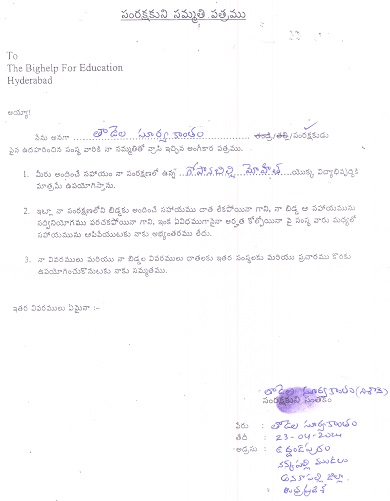 సంరక్షకుని సమ్మతి పత్రము
To
The Bighelp For Education
Hyderabad
అయ్యా!
నేను అనగా తాడెల సూర్యకాంతం తండ్రి/తల్లి/సంరక్షకుడు
పైన ఉదహరించిన సంస్థ వారికి నా సమ్మతితో వ్రాసి ఇచ్చిన అంగీకార పత్రము.
1. మీరు అందించే సహాయం నా సంరక్షణలో ఉన్న మోహిత్ యొక్క విద్యాభివృద్ధికి
మాత్రమే ఉపయోగిస్తాను.
2. ఇట్లా నా సంరక్షణలోని బిడ్డకు అందించే సహాయము దాత లేకపోయినా గాని, నా బిడ్డ ఆ సహాయమును
సద్వినియోగము పరచకపోయినా గాని, ఇంక ఏవిధముగానైనా అర్హత కోల్పోయినా పై సంస్థ వారు మధ్యలో
సహాయమును ఆపివేయుటకు నాకు అభ్యంతరము లేదు.
3. నా వివరములు మరియు నా బిడ్డల వివరములు దాతలకు ఇతర సంస్థలకు మరియు ప్రచారము కొరకు
ఉపయోగించుకొనుటకు నాకు సమ్మతము.
ఇతర వివరములు ఏమైనా :-
తాడెల సూర్యకాంతం
సంరక్షకుని సంతకం
పేరు : తాడెల సూర్యకాంతం
తేదీ : 23-04-2024
అడ్రసు : ఉద్దండపురం
నక్కపల్లి మండలం
అనకాపల్లి జిల్లా
ఆంధ్రప్రదేశ్